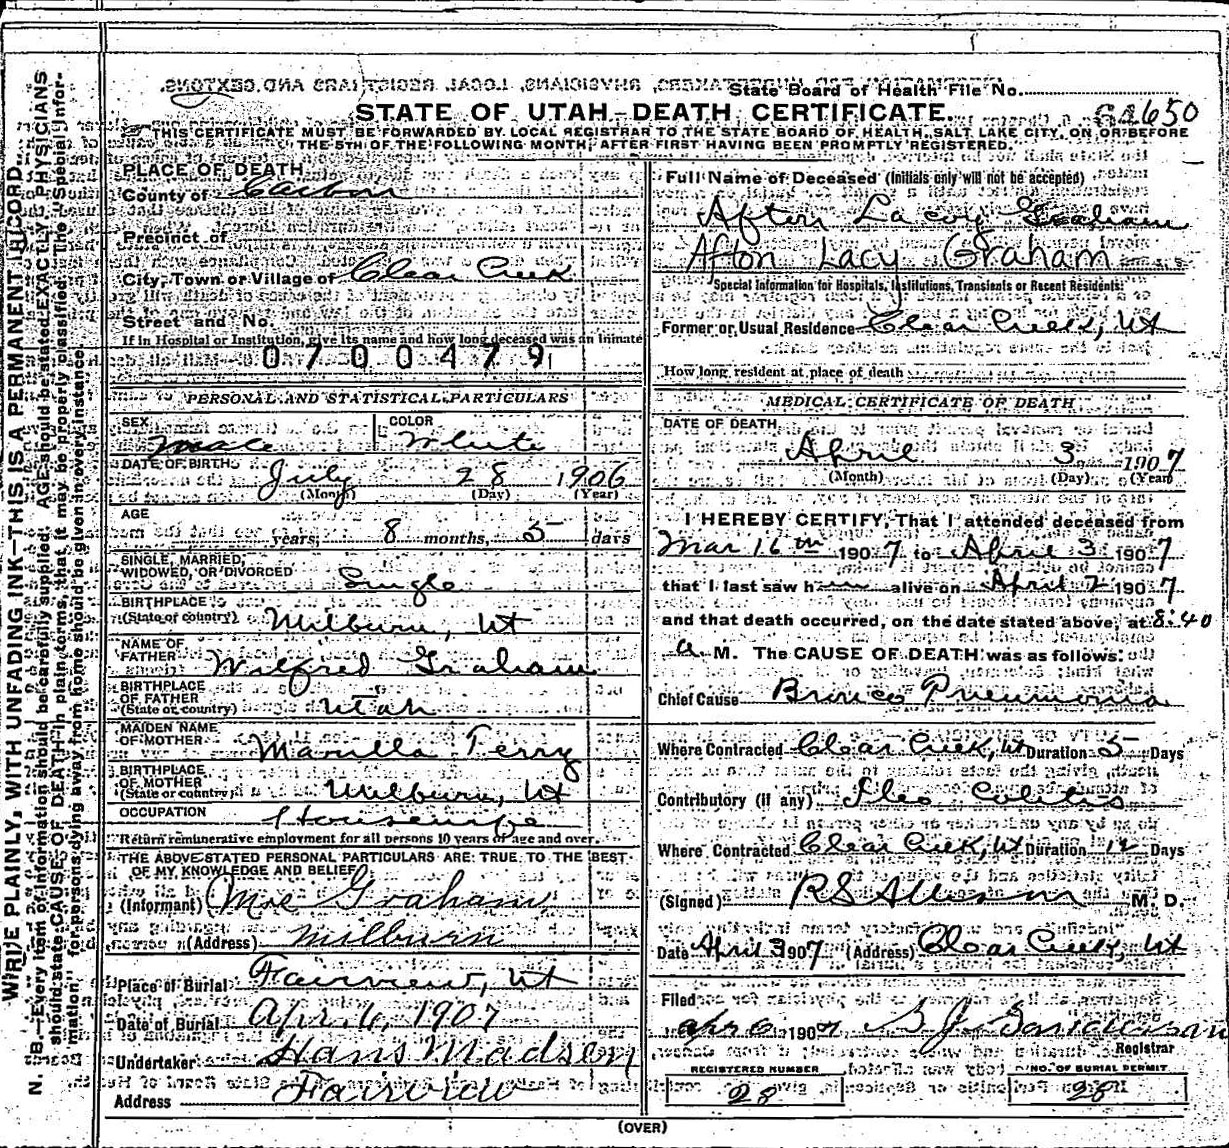 State Board of Health File No.
STATE OF UTAH—DEATH CERTIFICATE.
64650
THIS CERTIFICATE MUST BE FORWARDED BY LOCAL REGISTRAR TO THE STATE BOARD OF HEALTH, SALT LAKE CITY, ON OR BEFORE
THE 5TH OF THE FOLLOWING MONTH, AFTER FIRST HAVING BEEN PROMPTLY REGISTERED.
WRITE PLAINLY, WITH UNFADING INK—THIS IS A PERMANENT RECORD.
N. B.—Every item of information should be carefully supplied. AGE should be stated EXACTLY. PHYSICIANS
should state CAUSE OF DEATH in plain terms, that it may be properly classified. The "Special Infor-
mation" for persons dying away from home should be given in every instance.
PLACE OF DEATH
County of Carbon
Precinct of
City, Town or Village of Clear Creek
Street and No.
If in Hospital or Institution, give its name and how long deceased was an inmate
0700479
PERSONAL AND STATISTICAL PARTICULARS
SEX Male COLOR White
DATE OF BIRTH July 28 1906
(Month) (Day) (Year)
AGE
years, 8 months, 5 days
SINGLE, MARRIED,
WIDOWED, OR DIVORCED Single
BIRTHPLACE
(State or country) Milburn, Ut
NAME OF
FATHER Wilfred Graham
BIRTHPLACE
OF FATHER
(State or country) Utah
MAIDEN NAME
OF MOTHER Marilla Terry
BIRTHPLACE
OF MOTHER
(State or country) Milburn, Ut
OCCUPATION Housewife
Return remunerative employment for all persons 10 years of age and over.
THE ABOVE STATED PERSONAL PARTICULARS ARE TRUE TO THE BEST
OF MY KNOWLEDGE AND BELIEF
(Informant) Mrs Graham
(Address) Milburn
Place of Burial Fairview, Ut
Date of Burial Apr. 6, 1907
Undertaker Hans Madsen
Address Fairview
Full Name of Deceased (Initials only will not be accepted)
Afton Lacoy Graham
Afton Lacy Graham
Special Information for Hospitals, Institutions, Transients or Recent Residents:
Former or Usual Residence Clear Creek, Ut
How long resident at place of death
MEDICAL CERTIFICATE OF DEATH
DATE OF DEATH
April 3 1907
(Month) (Day) (Year)
I HEREBY CERTIFY, That I attended deceased from
Mar 16th 1907 to April 3 1907
that I last saw him alive on April 2 1907
and that death occurred, on the date stated above, at 8:40
a. M. The CAUSE OF DEATH was as follows:
Chief Cause Bronco Pneumonia
Where Contracted Clear Creek, Ut Duration 5 Days
Contributory (if any) Ileo Colitis
Where Contracted Clear Creek, Ut Duration 12 Days
(Signed) R S Allison M. D.
Date April 3 1907 (Address) Clear Creek, Ut
Filed
Apr 6 1907
Registrar
REGISTERED NUMBER NO. OF BURIAL PERMIT
28 28
(OVER)